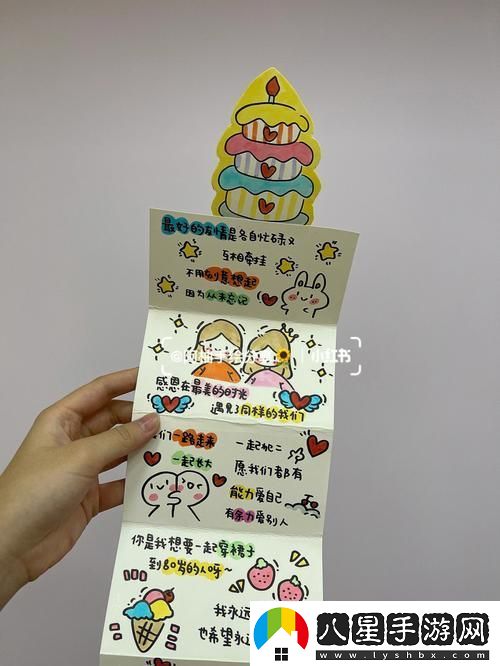 最好的友情是各自忙碌又
互相牵挂
不用刻意想起
因为从未忘记
小红书
感恩在最美的时光
遇见了同样的我们
我们一路走来
一起长大
一起犯二
愿我们都有
能力爱自己
有余力爱别人
你是我想要一起穿裙子
到80岁的人呀~
我永远
也希望永远
八星手游网
www.lyshbx.com